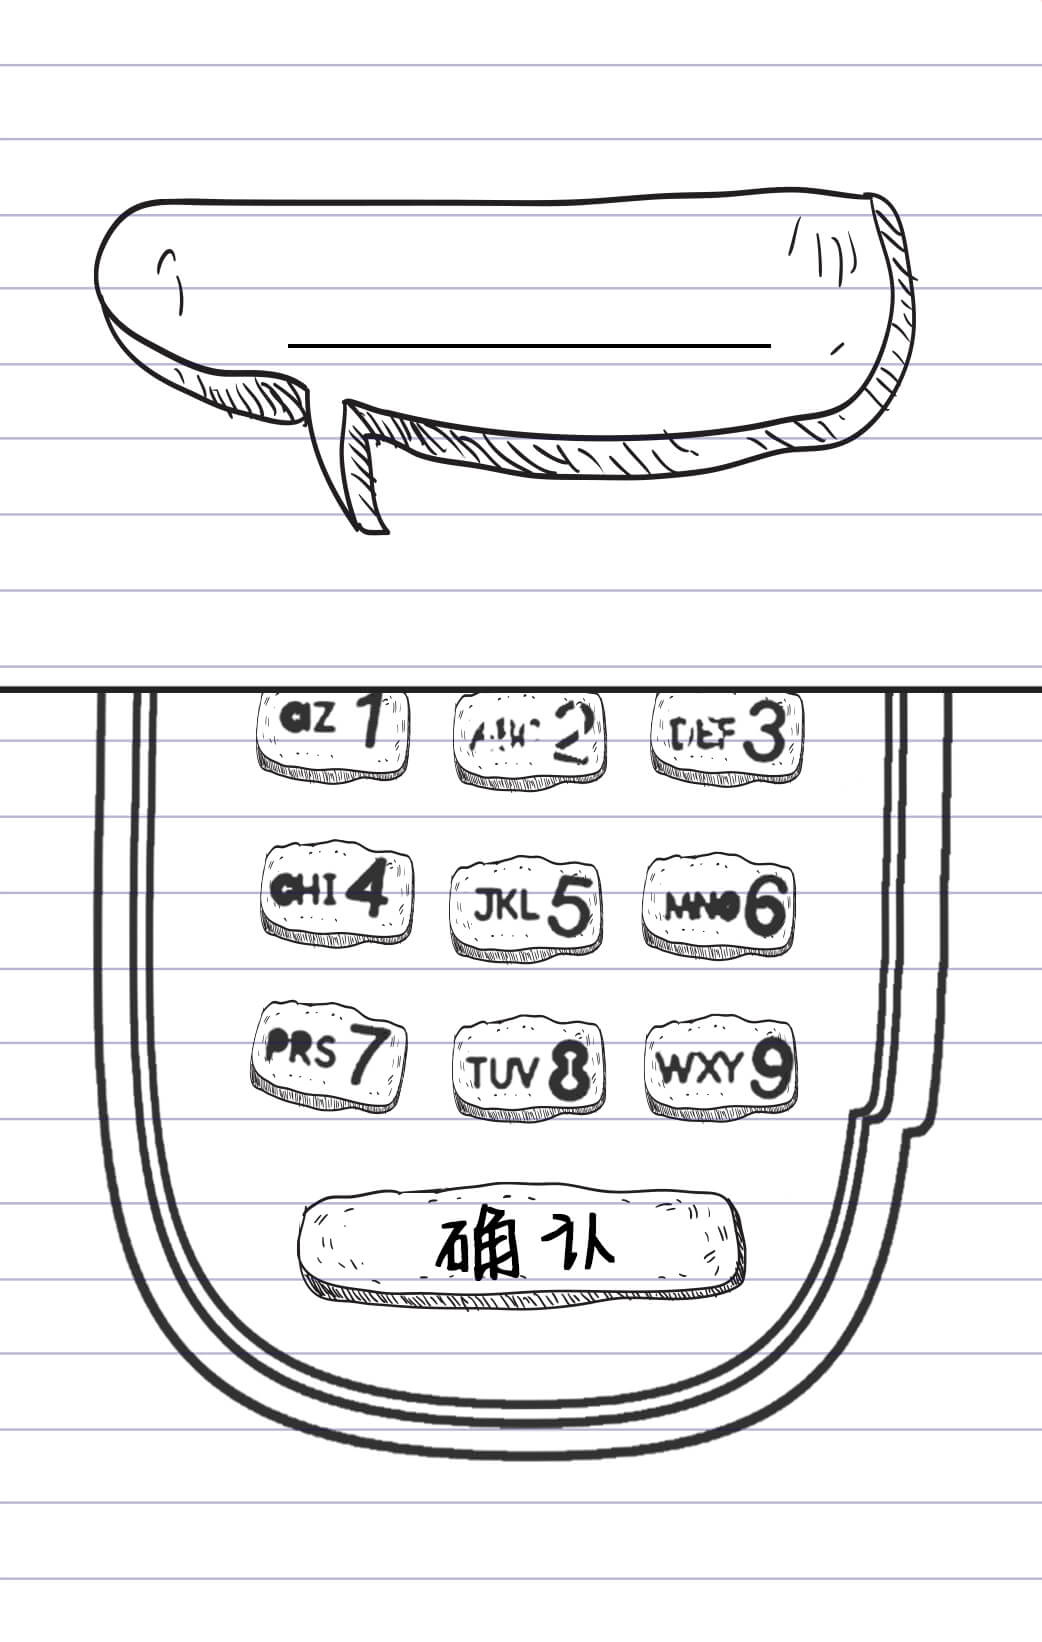 az 1
2
DEF 3
GHI 4
JKL 5
MNO 6
PRS 7
TUV 8
WXY 9
确认